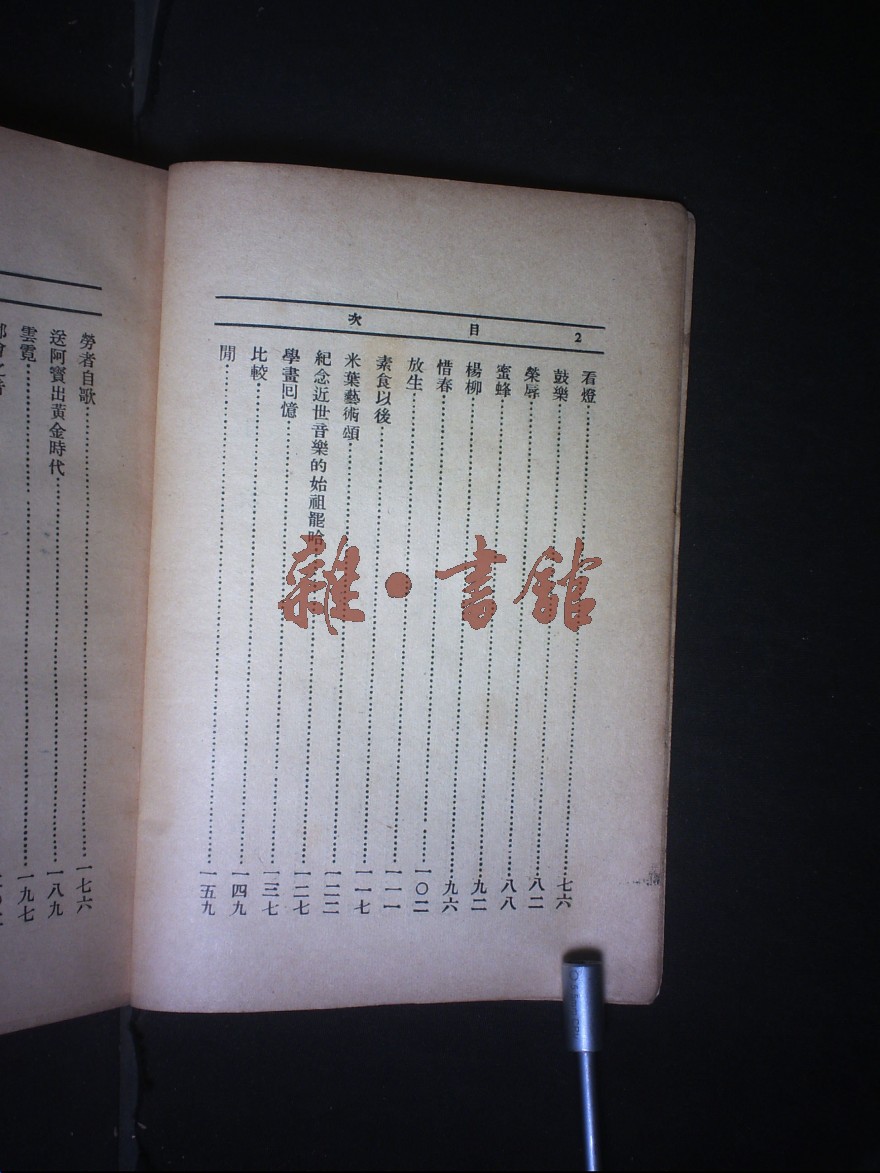 2 目 次
看燈……七六
鼓樂……八二
榮辱……八八
蜜蜂……九二
楊柳……九六
惜春……一〇二
放生……一一一
素食以後……一一七
米葉藝術頌……一二二
紀念近世音樂的始祖罷哈……一二七
學畫回憶……一三七
比較……一四九
閒……一五九
勞者自歌……一七六
送阿寶出黃金時代……一八九
雲霓……一九七
雜·書館